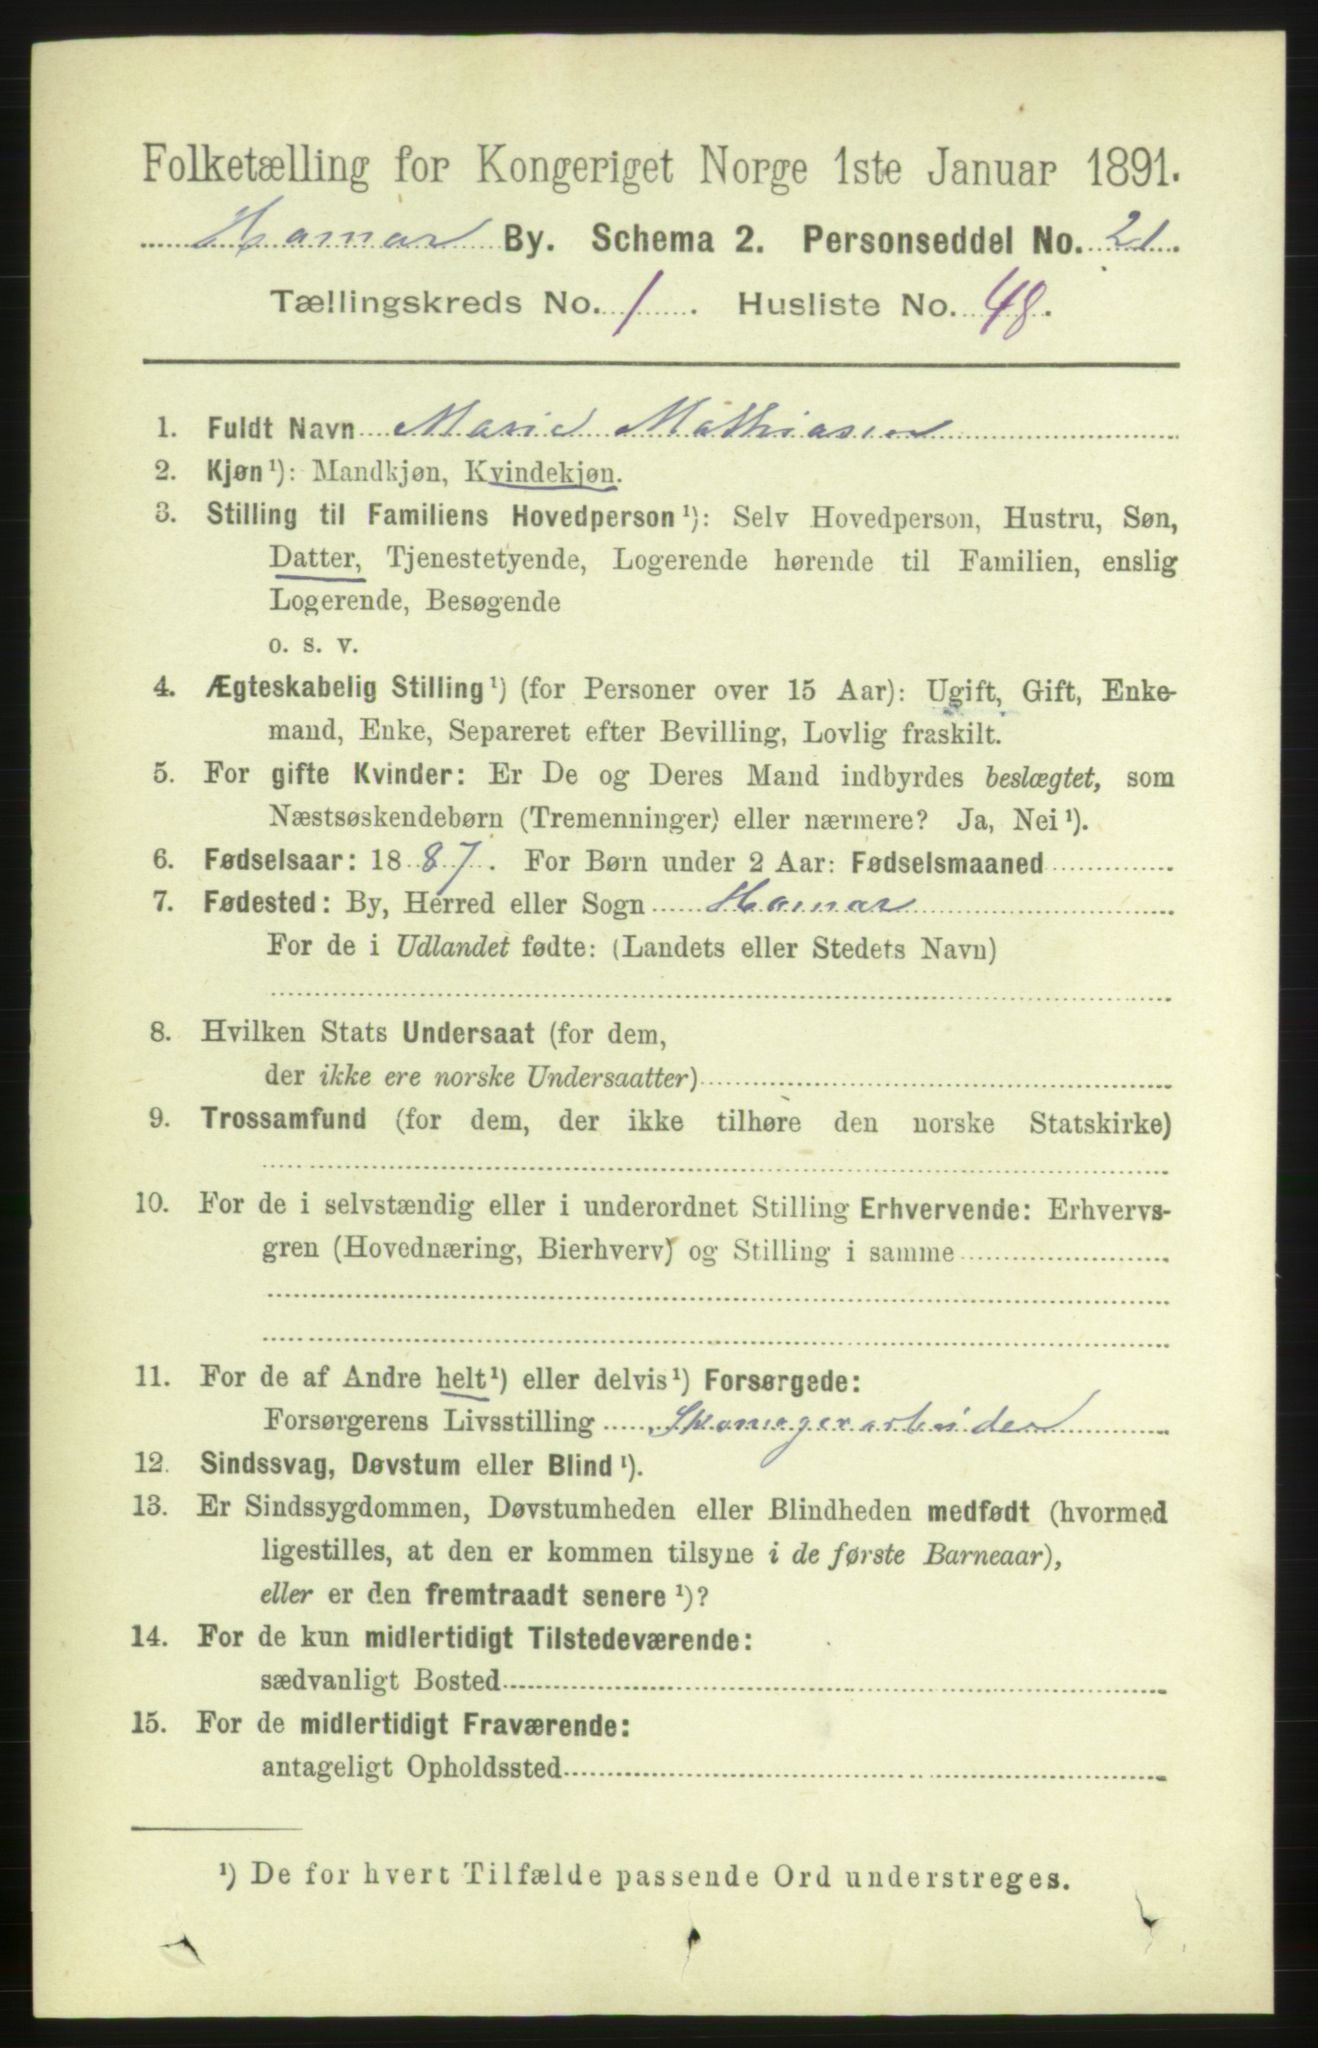 Folketælling for Kongeriget Norge 1ste Januar 1891.
Hamar By. Schema 2. Personseddel No. 21.
Tællingskreds No. 1. Husliste No. 48.
1. Fuldt Navn Marie Mathiasen
2. Kjøn¹): Mandkjøn, Kvindekjøn.
3. Stilling til Familiens Hovedperson¹): Selv Hovedperson, Hustru, Søn,
Datter, Tjenestetyende, Logerende hørende til Familien, enslig
Logerende, Besøgende
o. s. v.
4. Ægteskabelig Stilling¹) (for Personer over 15 Aar): Ugift, Gift, Enke-
mand, Enke, Separeret efter Bevilling, Lovlig fraskilt.
5. For gifte Kvinder: Er De og Deres Mand indbyrdes beslægtet, som
Næstsøskendebørn (Tremenninger) eller nærmere? Ja, Nei¹).
6. Fødselsaar: 1887. For Børn under 2 Aar: Fødselsmaaned
7. Fødested: By, Herred eller Sogn Hamar
For de i Udlandet fødte: (Landets eller Stedets Navn)
8. Hvilken Stats Undersaat (for dem,
der ikke ere norske Undersaatter)
9. Trossamfund (for dem, der ikke tilhøre den norske Statskirke)
10. For de i selvstændig eller i underordnet Stilling Erhvervende: Erhvervs-
gren (Hovednæring, Bierhverv) og Stilling i samme
11. For de af Andre helt¹) eller delvis¹) Forsørgede:
Forsørgerens Livsstilling Skomagerarbeider
12. Sindssvag, Døvstum eller Blind¹).
13. Er Sindssygdommen, Døvstumheden eller Blindheden medfødt (hvormed
ligestilles, at den er kommen tilsyne i de første Barneaar),
eller er den fremtraadt senere¹)?
14. For de kun midlertidigt Tilstedeværende:
sædvanligt Bosted
15. For de midlertidigt Fraværende:
antageligt Opholdssted
¹) De for hvert Tilfælde passende Ord understreges.